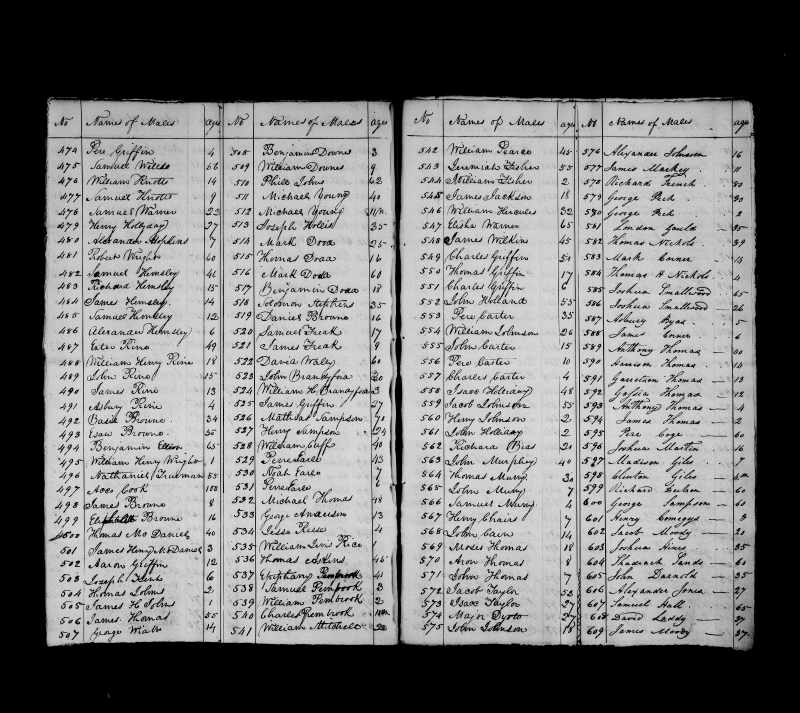 No Names of Males ages
474 Pere Griffin 4
475 Samuel 56
476 William Knotts 14
477 Samuel Knotts 9
478 Samuel Warner 22
479 Henry Hollyday 27
480 Alexander Hopkins 7
481 Robert Wright 60
482 Samuel Hemsley 46
483 Richard Hemsley 15
484 James Hemsley 14
485 Samuel Hemsley 12
486 Alexander Hemsley 6
487 49
488 William Henry 18
489 John 15
490 James 13
491 Asbury 4
492 Browne 34
493 Browne 50
494 Benjamin 65
495 William Henry Wright 1
496 Nathaniel Freeman 55
497 Cook 100
498 James Browne 8
499 Browne 16
500 Thomas Mc Daniel 40
501 James Henry Mc Daniel 3
502 Aaron Griffin 12
503 Joseph Kent 6
504 Thomas Johns 2
505 James H Johns 1
506 James Thomas 35
507 George 14
No Names of Males ages
508 Benjamin Downes 3
509 William Downes 9
510 Phill Johns 62
511 Michael Young 40
512 Michael Young
513 Joseph 35
514 Mark Dodd 25
515 Thomas Dodd 16
516 Mark Dodd 60
517 Benjamin Dodd 18
518 Solomon Stephens 35
519 Daniel Browne 16
520 Samuel Freak 17
521 James Freak 9
522 David 60
523 John 30
524 William H. 3
525 James Griffin 27
526 Mathias Sampson 70
527 Henry Sampson 24
528 William Cuff 40
529 43
530 Noah 7
531 6
532 Michael Thomas 48
533 George Anderson 13
534 Jesse 4
535 William 1
536 Thomas 45
537 Epiphany Pembrook 41
538 Samuel Pembrook 3
539 William Pembrook 2
540 Charles Pembrook
541 William Mitchell 32
No Names of Males ages
542 William 45
543 Jeremiah Fisher 55
544 William Fisher 2
545 James Jackson 18
546 William Hercules 32
547 Elisha Warner 65
548 James Wilkins 45
549 Charles Griffin 50
550 Thomas Griffin 17
551 Charles Griffin 6
552 John Holland 55
553 Pere Carter 35
554 William Johnson 26
555 John Carter 15
556 Pere Carter 10
557 Charles Carter 4
558 Isaac Holliday 48
559 Jacob Johnson 55
560 Henry Johnson 2
561 John Holliday 2
562 Richard Bias 21
563 John Murphey 40
564 Thomas Murry 30
565 John Murry 7
566 Samuel Murry 4
567 Henry Chairs 7
568 John Cain 14
569 Moses Thomas 18
570 Aron Thomas 8
571 John Thomas 7
572 Jacob Taylor 53
573 Isaac Taylor 27
574 Major 27
575 John Johnson 18
No Names of Males ages
576 Alexander Johnson 16
577 James Mackey 11
578 Richard French 30
579 George Peck 30
580 George Peck 2
581 London Gould 35
582 Thomas Nichols 39
583 Mark Corner 18
584 Thomas H Nichols 4
585 Joshua Smallwood 65
586 Joshua Smallwood 26
587 Asbury Byas 5
588 James Corner 6
589 Anthony Thomas 40
590 Harrison Thomas 14
591 Garretson Thomas 13
592 Thomas 12
593 Anthony Thomas 4
594 James Thomas 2
595 Pere Coge 60
596 Joshua Martin 16
597 Madison Giles 6
598 Clinton Giles
599 Richard 60
600 George Sampson 60
601 Henry Comegys 3
602 Jacob Moody 20
603 Joshua Hines 35
604 Shadrach Sands 60
605 John Darnold 35
606 Alexander Jones 27
607 Samuel Hall 65
608 David Laddy 27
609 James Moody 37